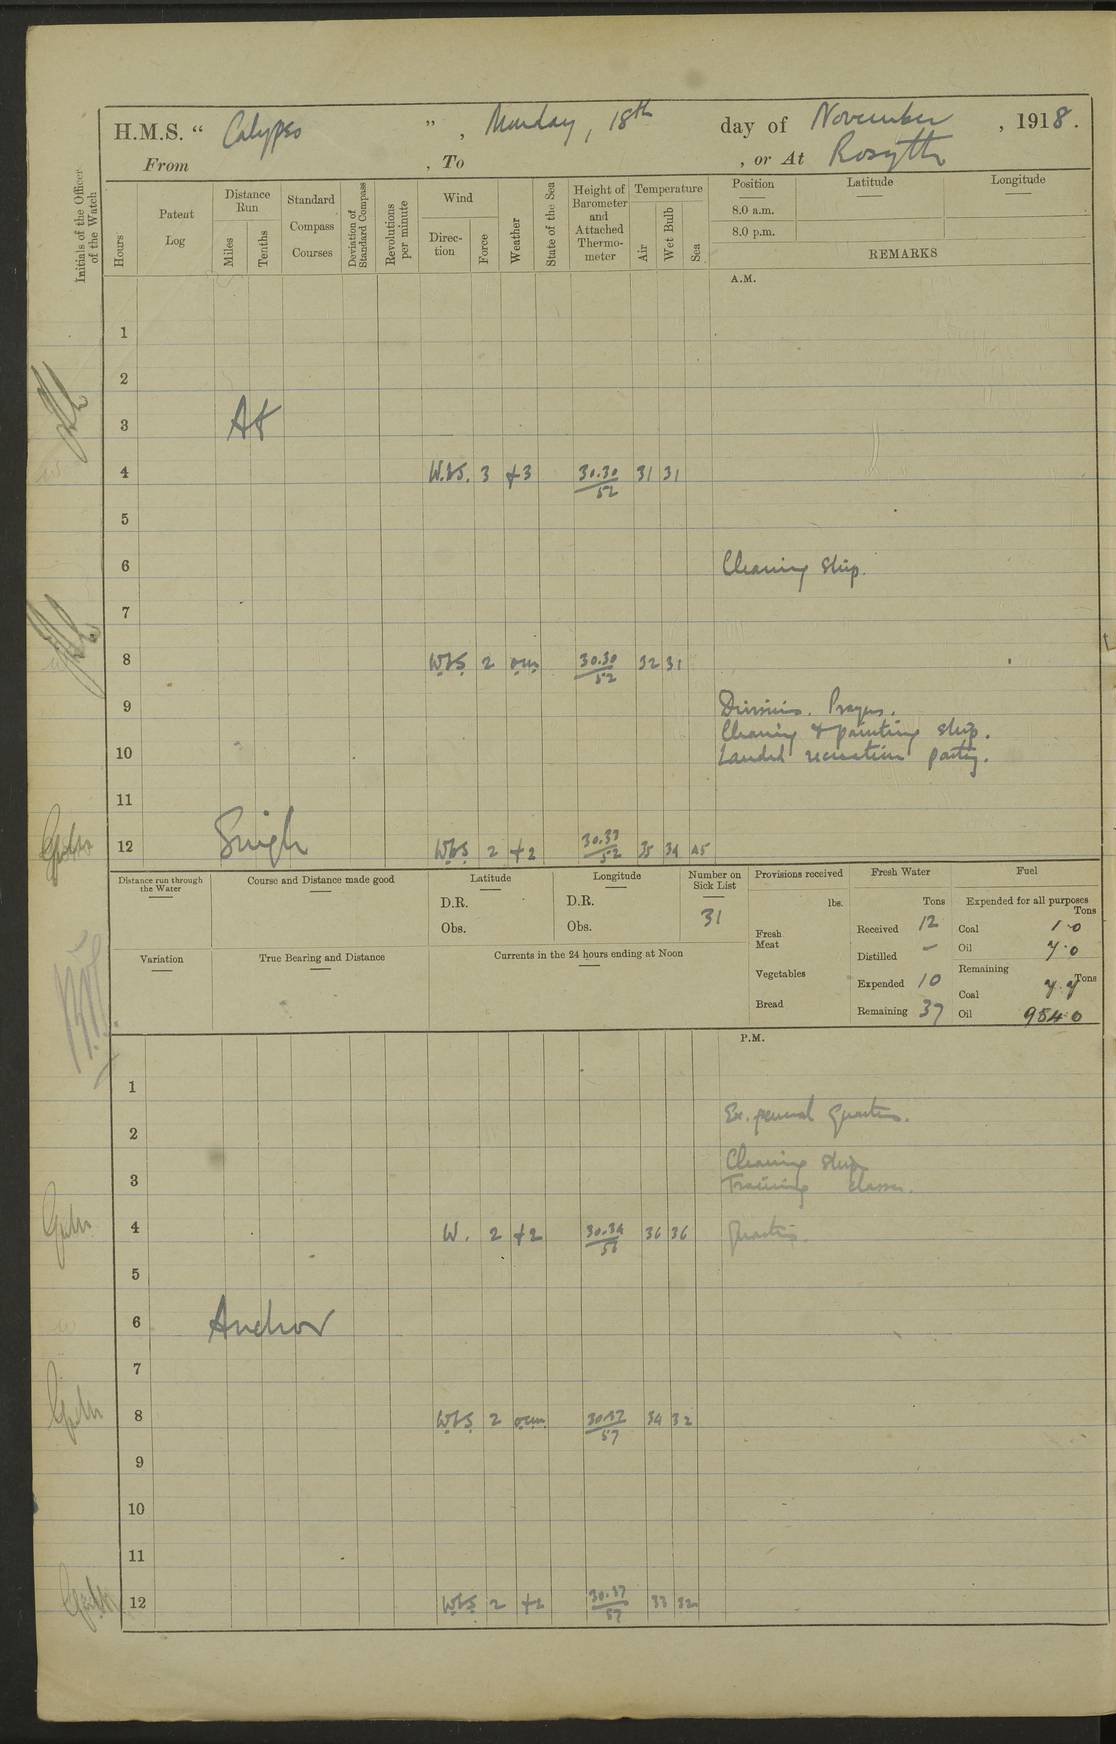 H.M.S. “ Calypso ” , Monday, 18th day of November , 1918.
From , To , or At Rosyth
Initials of the Officer of the Watch
Hours
Patent Log
Distance Run
Miles
Tenths
Standard Compass Courses
Deviation of Standard Compass
Revolutions per minute
Wind
Direction
Force
Weather
State of the Sea
Height of Barometer and Attached Thermometer
Temperature
Air
Wet Bulb
Sea
Position Latitude Longitude
8.0 a.m.
8.0 p.m.
REMARKS
A.M.
1
2
3 At
4 W.b.S. 3 30.30/52 31 31
5
6 Cleaning ship.
7
8 WbS 2 30.30/52 32 31
9 Divisions. Prayers.
Cleaning & painting ship.
10 Landed recreation party.
11
12 Single WbS 2 30.33/52 35 34 45
Distance run through the Water
Course and Distance made good
Latitude
D.R.
Obs.
Longitude
D.R.
Obs.
Number on Sick List
31
Provisions received
lbs.
Fresh Meat
Vegetables
Bread
Fresh Water
Tons
Received 12
Distilled –
Expended 10
Remaining 37
Fuel
Expended for all purposes
Tons
Coal 1.0
Oil 7.0
Remaining
Tons
Coal 7.7
Oil 954.0
Variation
True Bearing and Distance
Currents in the 24 hours ending at Noon
P.M.
1
Ex. general quarters.
2
Cleaning ship
3 Training classes.
4 W. 2 30.34 36 36 Quarters.
5
6 Anchor
7
8 WbS 2 30.37/57 34 32
9
10
11
12 WbS 2 30.37/57 33 32